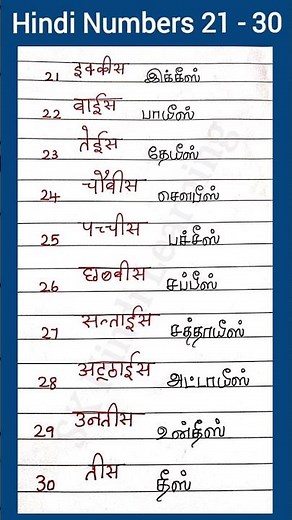 Hindi Numbers 21 - 30
21 इक्कीस இக்கீஸ்
22 बाईस பாயீஸ்
23 तेईस தேயீஸ்
24 चौबीस சௌபீஸ்
25 पच्चीस பச்சீஸ்
26 छब्बीस சப்பீஸ்
27 सत्ताईस சத்தாயீஸ்
28 अट्ठाईस அட்டாயீஸ்
29 उनतीस உன்தீஸ்
30 तीस தீஸ்